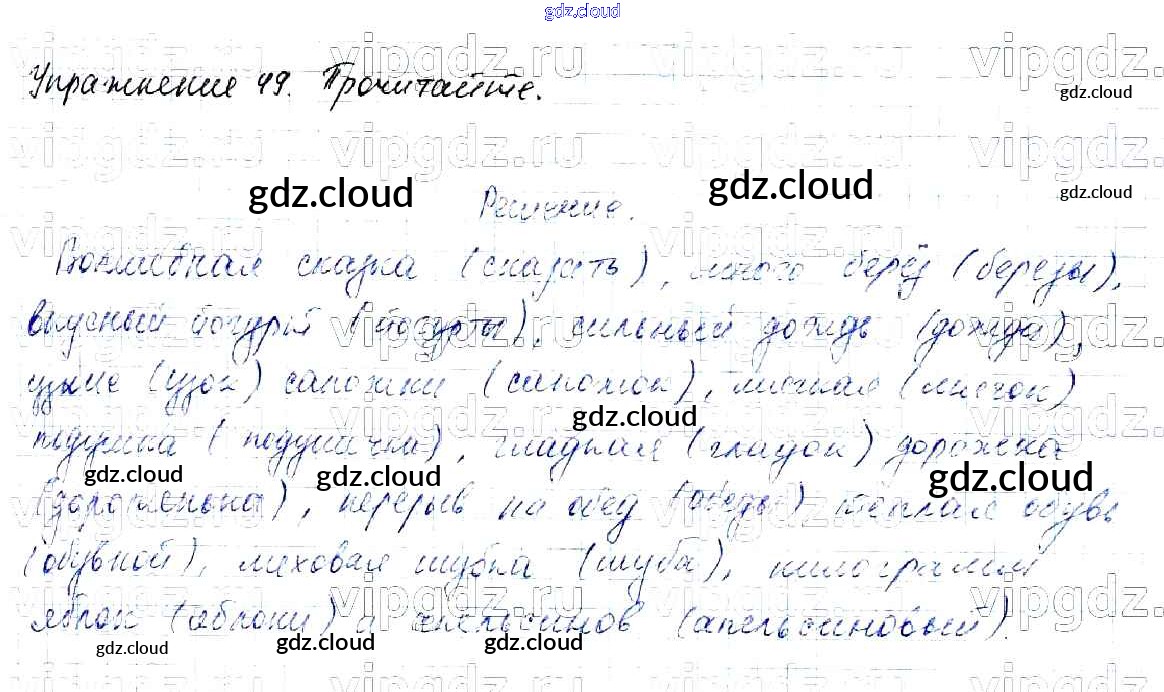 gdz.cloud
Упражнение 49. Прочитайте.
gdz.cloud
gdz.cloud gdz.cloud gdz.cloud
Решение.
Волшебная сказка (сказать), много берёз (березы),
вкусный йогурт (йогурты), сильный дождь (дождя),
узкие (узок) сапожки (сапожок), мягкая (мягок)
gdz.cloud
подушка (подушечка), гладкая (гладок) дорожка
gdz.cloud gdz.cloud gdz.cloud
(дороженька), перерыв на обед (обеды) теплая обувь
(обувной), меховая шубка (шуба), килограмм
яблок (яблоки) и апельсинов (апельсиновый).
gdz.cloud gdz.cloud gdz.cloud
vipgdz.ru